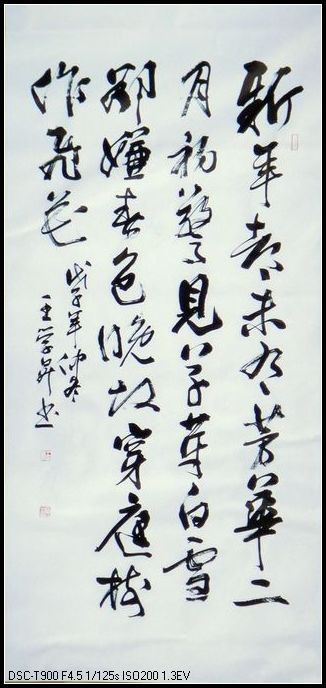 新年都未有芳華二
月初驚見草芽白雪
卻嫌春色晚故穿庭樹
作飛花
戊子年仲冬
王學書
DSC-T900 F4.5 1/125s ISO200 1.3EV